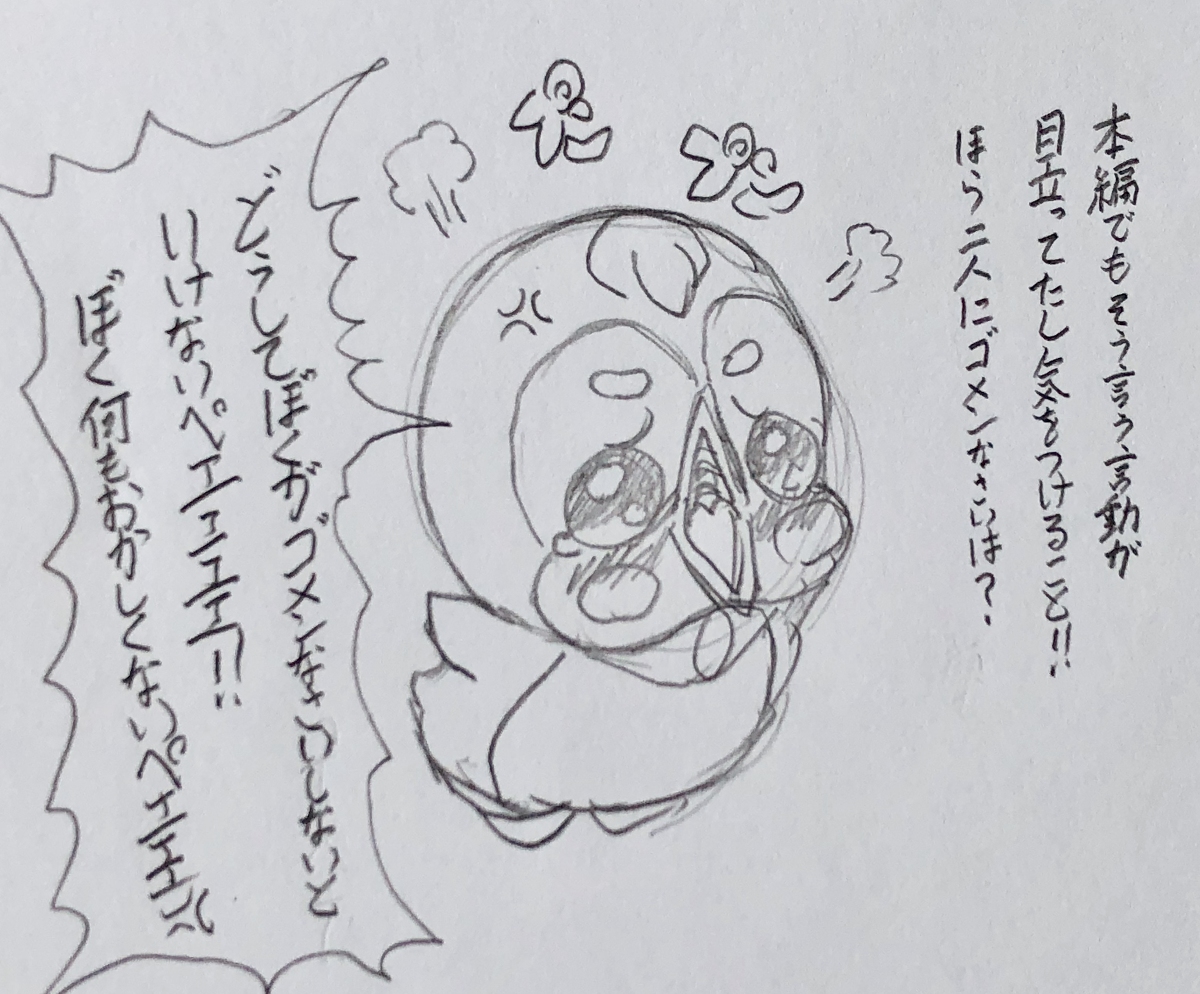 本編でもそう言う言動が
目立ってたし気をつけること!!
ほら二人にゴメンなさいは?
どうしてぼくがゴメンなさいしないと
いけないペエエエエ!!
ぼく何もおかしくないペエエエ